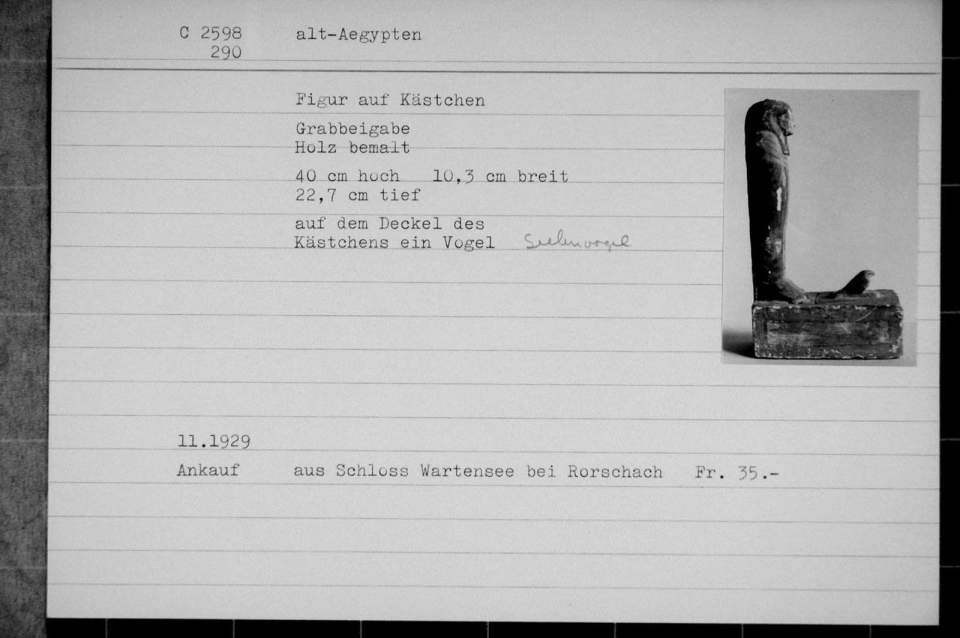 C 2598 alt-Aegypten
290
Figur auf Kästchen
Grabbeigabe
Holz bemalt
40 cm hoch 10,3 cm breit
22,7 cm tief
auf dem Deckel des
Kästchens ein Vogel Seelenvogel
11.1929
Ankauf aus Schloss Wartensee bei Rorschach Fr. 35.-